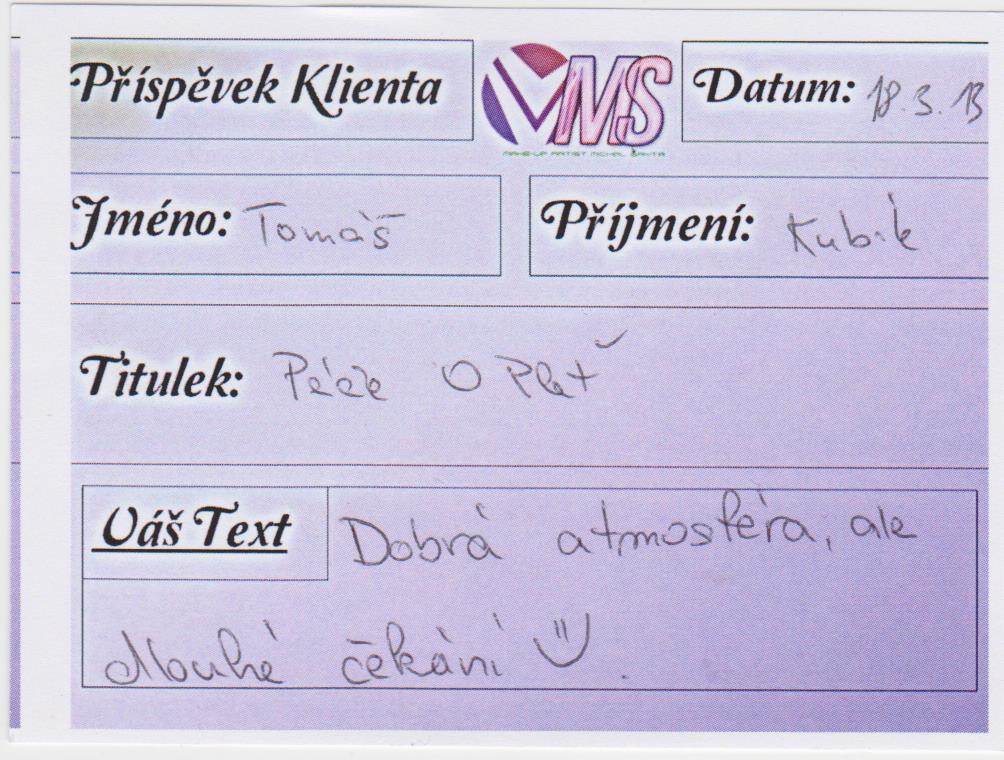 Příspěvek Klienta
MMS
MAKE-UP ARTIST MICHAL ŠANTA
Datum: 18.3.13
Jméno: Tomáš
Příjmení: Kubík
Titulek: Péče O Pleť
Váš Text Dobrá atmosféra, ale
dlouhé čekání